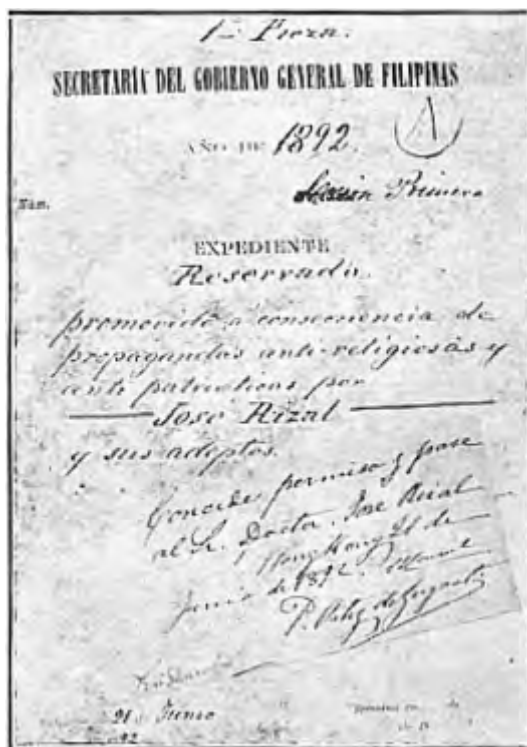 1ª Pieza.
SECRETARÍA DEL GOBIERNO GENERAL DE FILIPINAS
AÑO DE 1892.
A
Sección Primera
Núm.
EXPEDIENTE
Reservado.
promovido a consecuencia de
propagandas anti-religiosas y
anti patrioticas por
Jose Rizal
y sus adeptos.
Concede permiso y pase
al Sr. Doctor Jose Rizal
Hong Kong 21 de
Junio de 1892.
P.
21 Junio
92